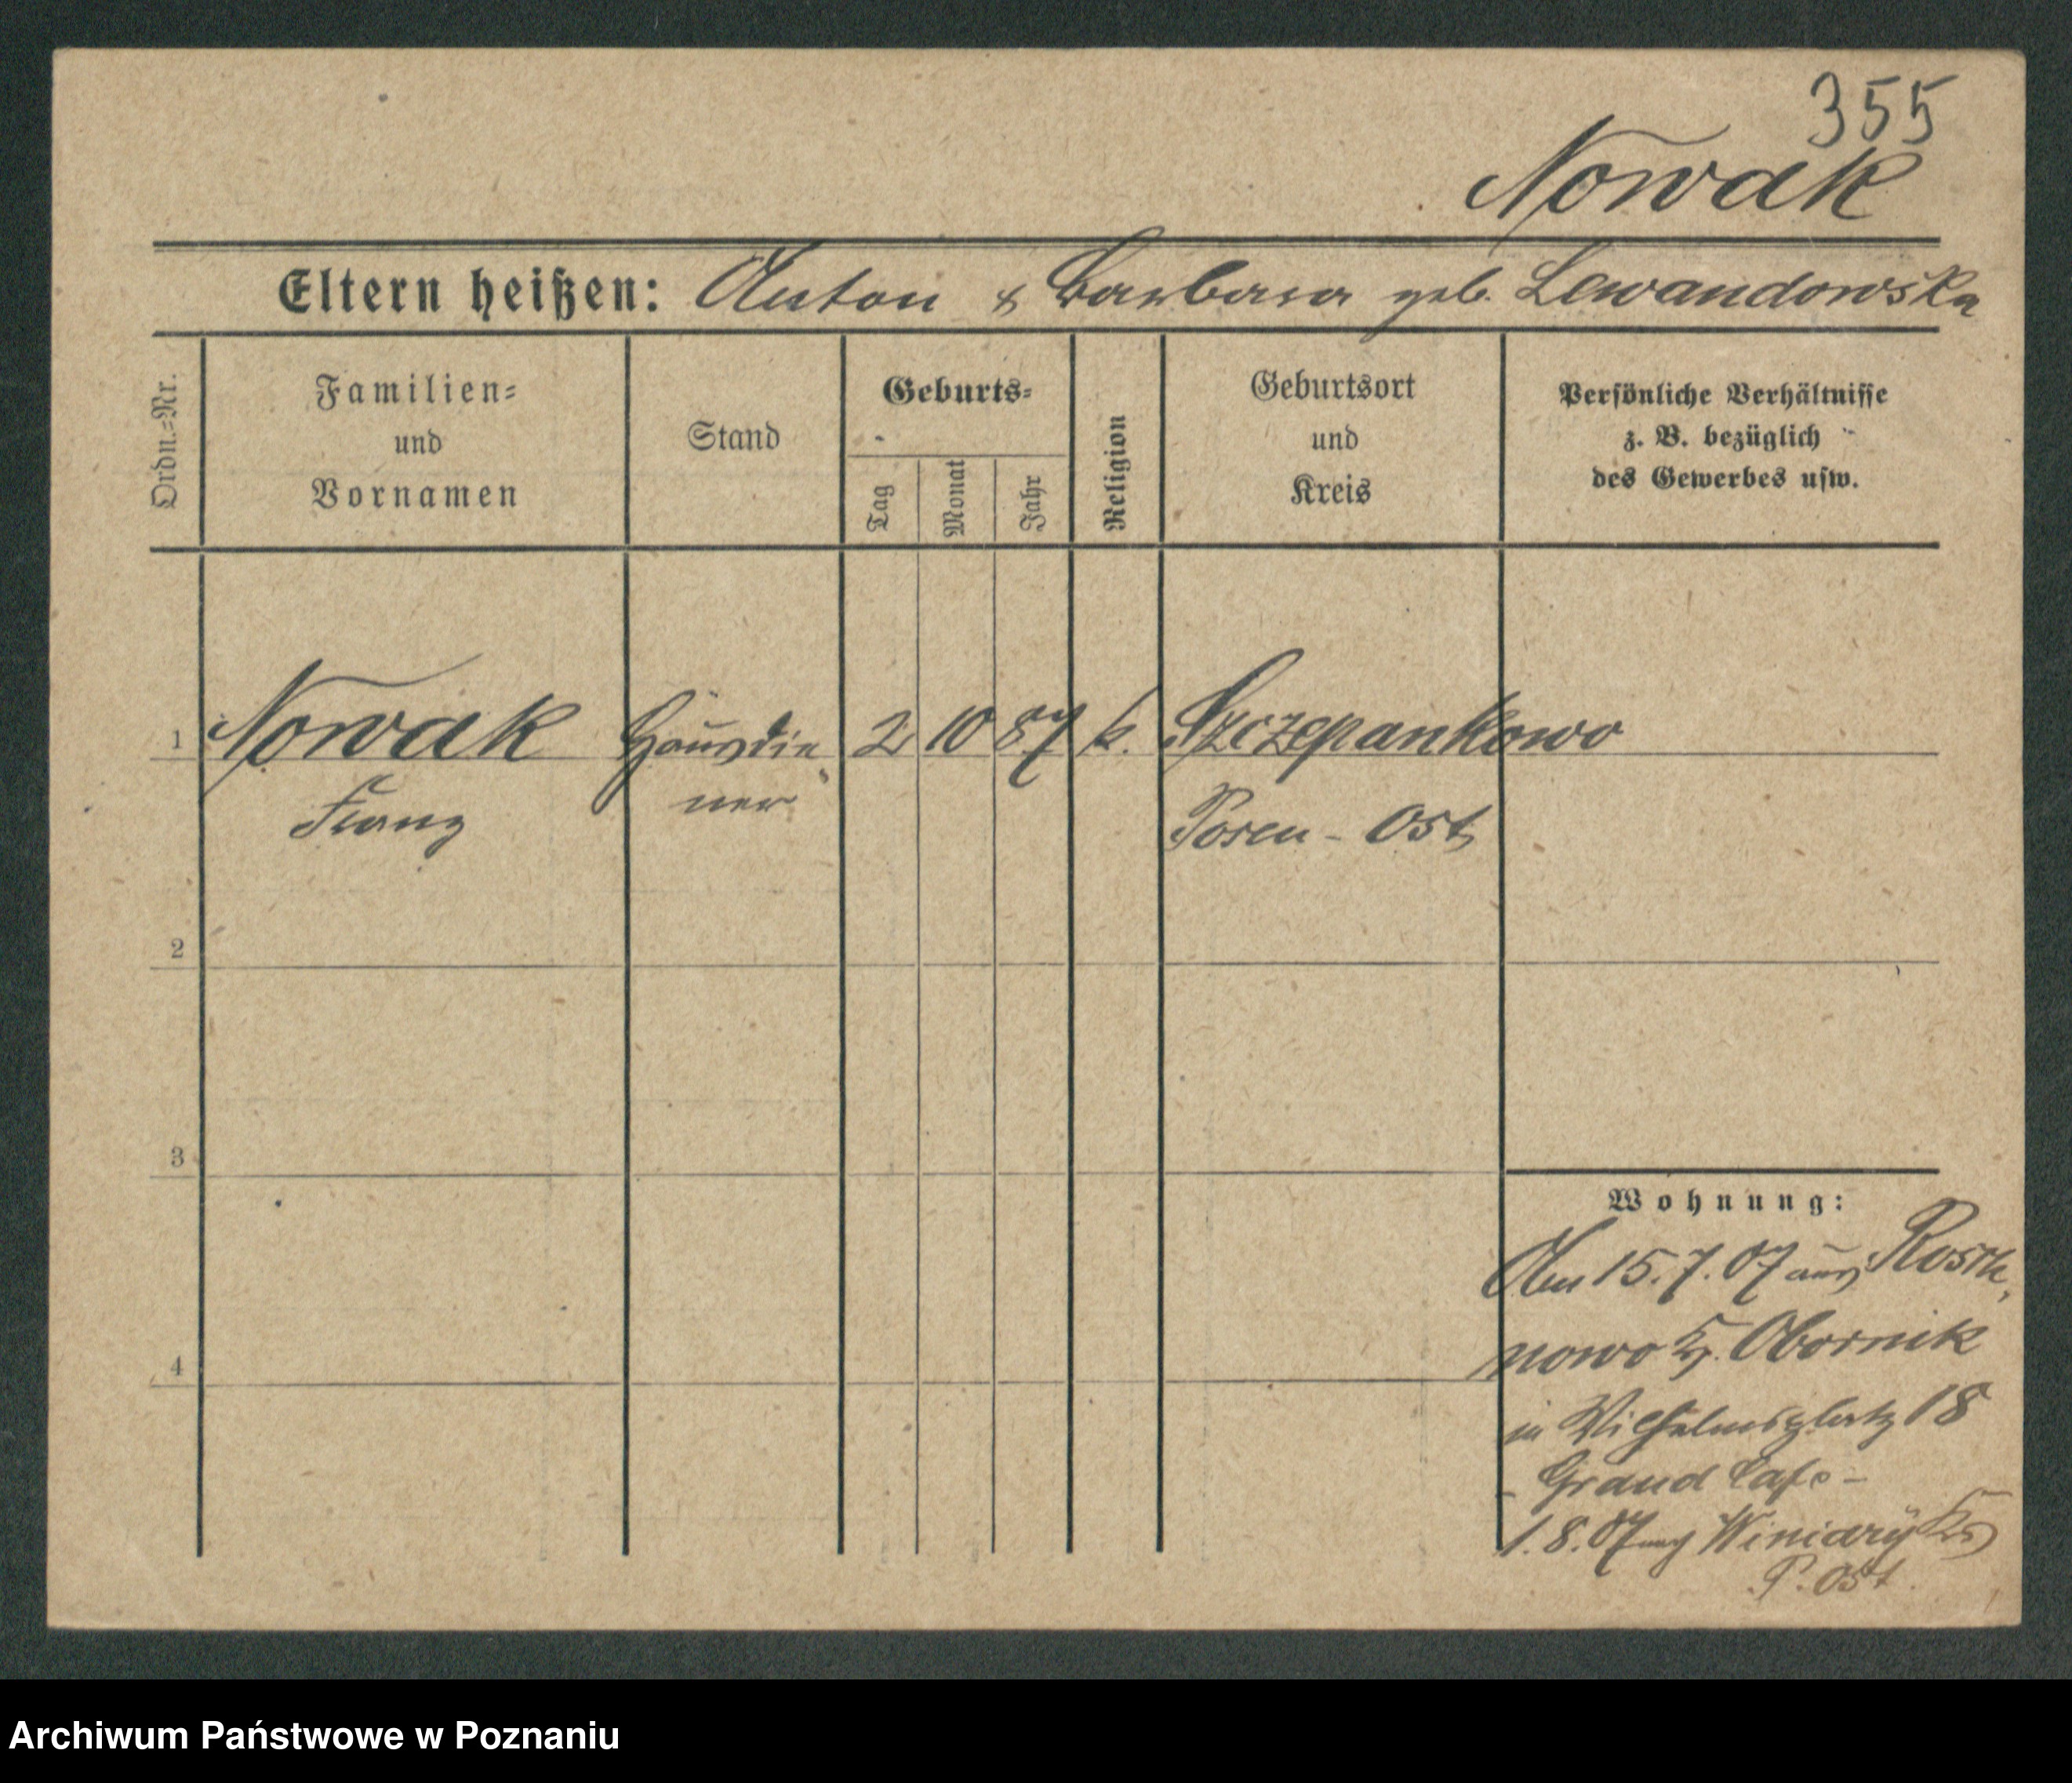 355
Nowak
Eltern heißen: Anton & Barbara geb. Lewandowska
Ordn.=Nr.
Familien=
und
Vornamen
Stand
Geburts=
Tag
Monat
Jahr
Religion
Geburtsort
und
Kreis
Persönliche Verhältnisse
z. B. bezüglich
des Gewerbes usw.
1 Nowak Hausdie 2 10 87 k. Szczepankowo
Franz ner Posen - Ost
2
3
4
Wohnung:
Am 15.7.07 aus
nowo Kr. Obornik
in Wilhelmsplatz 18
- Grand Cafe -
1.8.07 nach Winiary Kr
P. Ost
Archiwum Państwowe w Poznaniu